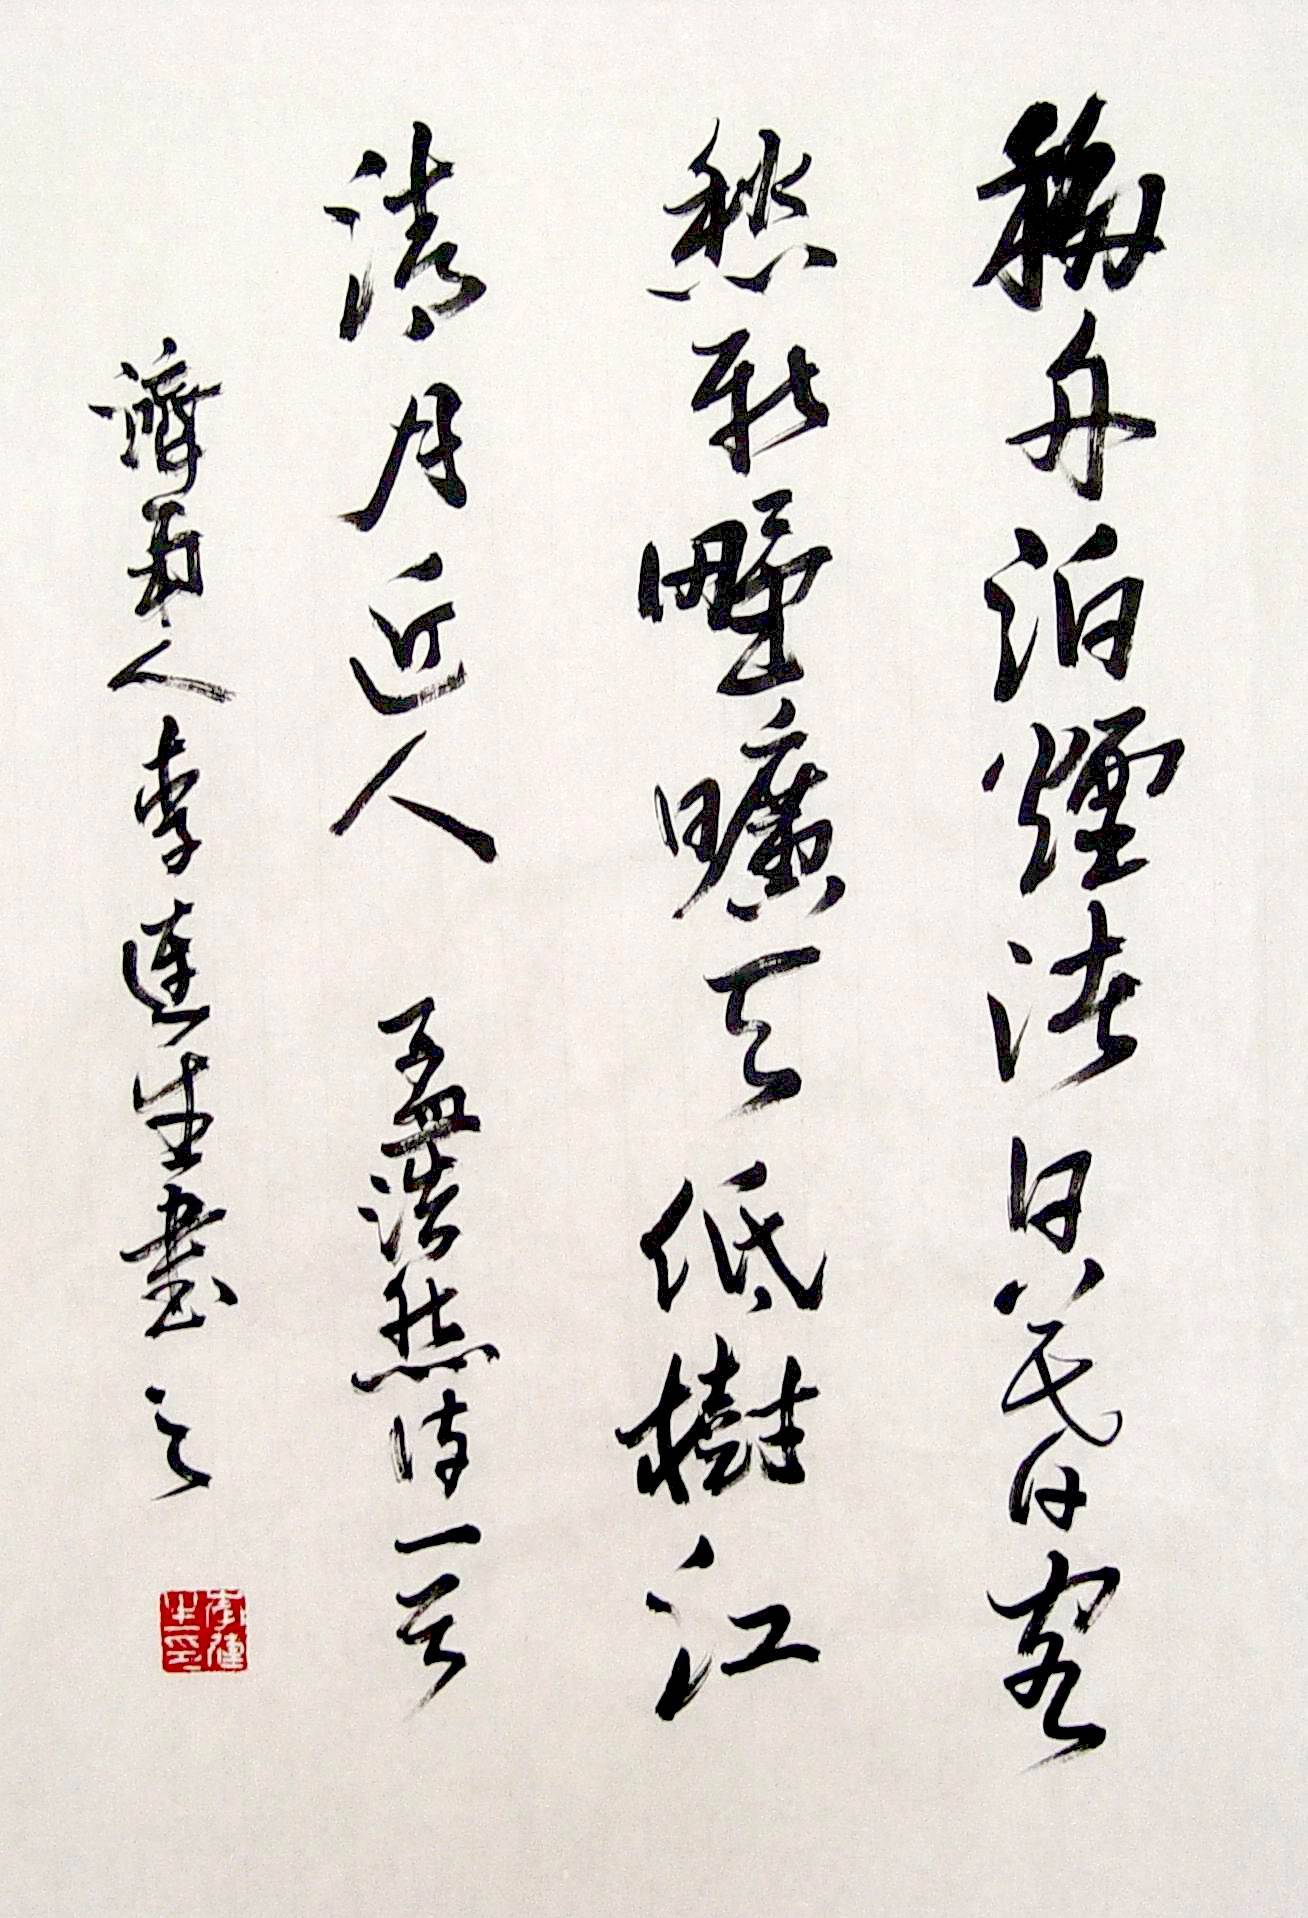 移舟泊煙渚日暮客
愁新野曠天低樹江
清月近人 孟浩然詩一首
濟南人李連生書之
李連生印